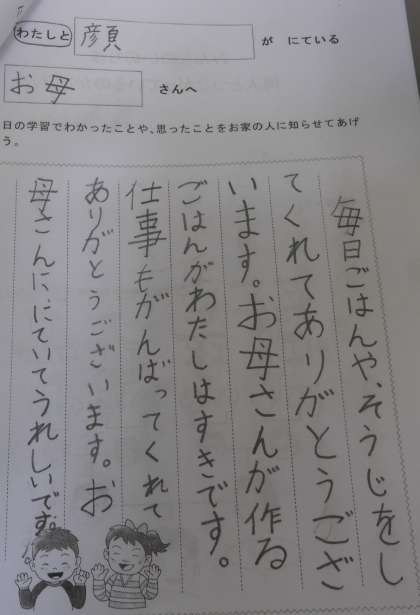 わたしと 顔 が にている
お母 さんへ
日の学習でわかったことや、思ったことをお家の人に知らせてあげ
う。
毎日ごはんや、そうじをし
てくれてありがとうござ
います。お母さんが作る
ごはんがわたしはすきです。
仕事もがんばってくれて
ありがとうございます。お
母さんに、にていてうれしいです。